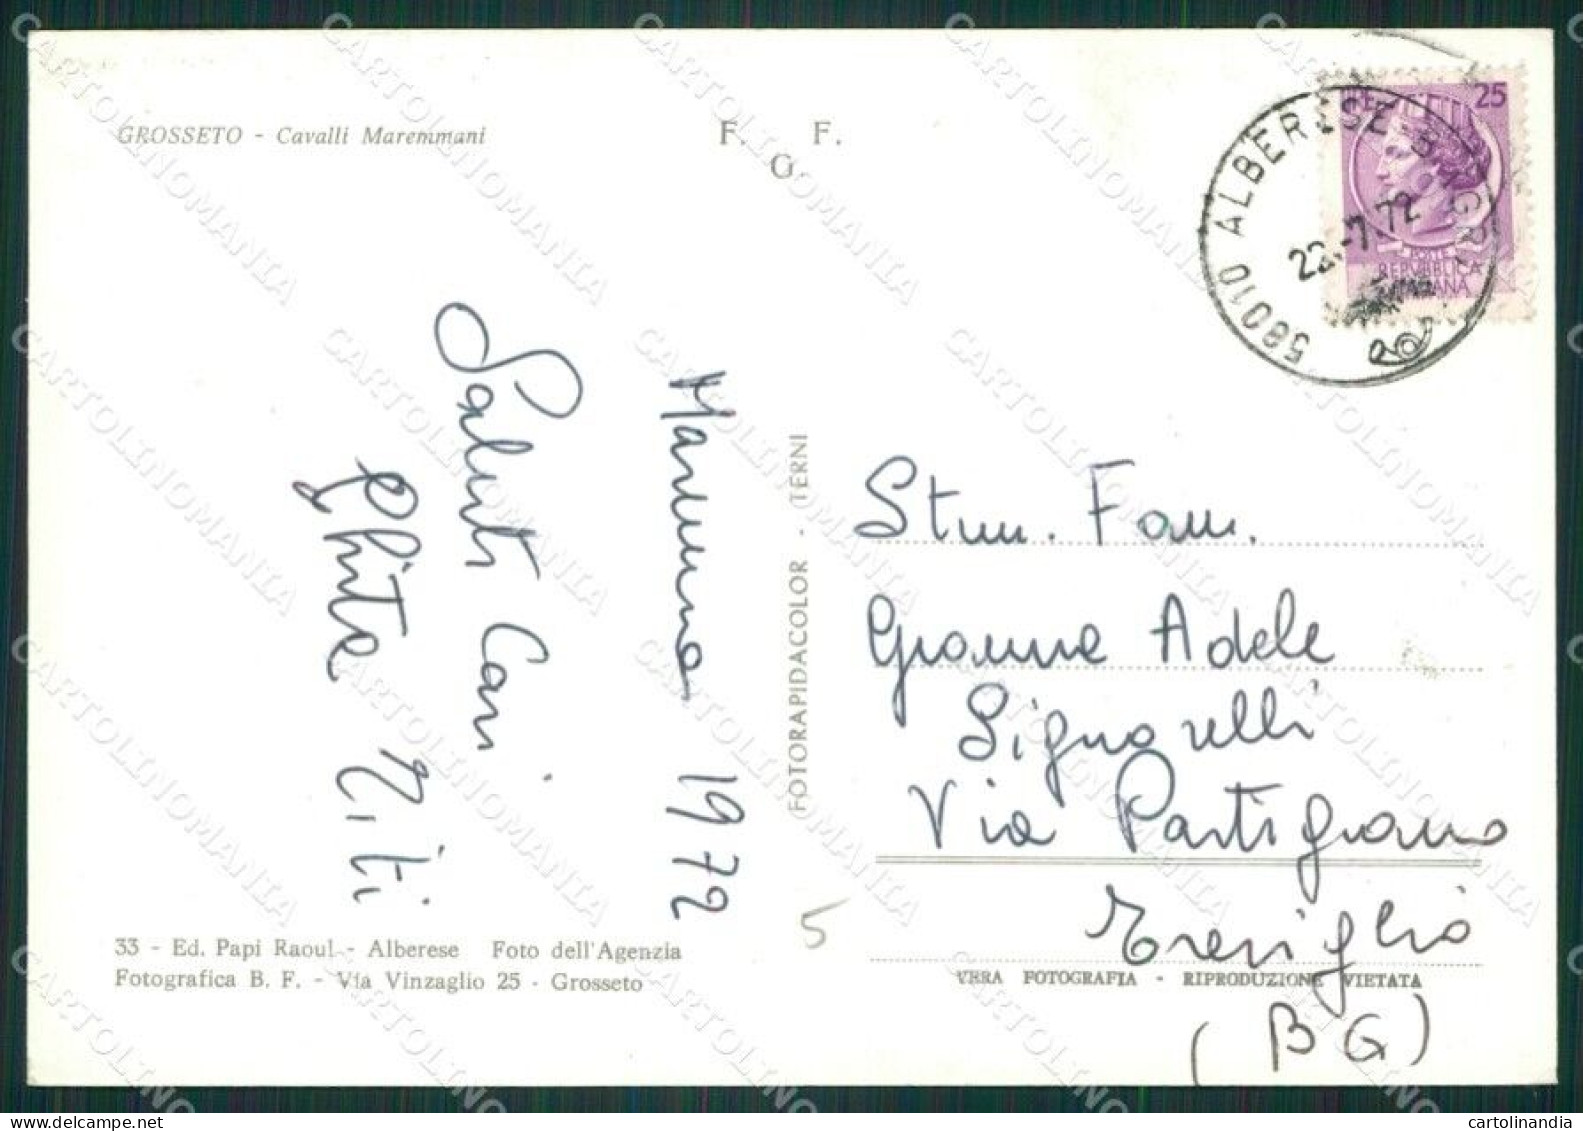 GROSSETO - Cavalli Maremmani
F. F.
G.
LIRE 25
POSTE
REPUBBLICA
ITALIANA
58010 ALBERESE (GR)
22.-7.72
Maremma 1972
Saluti Cari
Titi
FOTORAPIDACOLOR - TERNI
Stim. Fam.
Gianna Adele
Signorelli
Via Partigiano
Treviglio
(BG)
5
33 - Ed. Papi Raoul - Alberese Foto dell'Agenzia
Fotografica B. F. - Via Vinzaglio 25 - Grosseto
VERA FOTOGRAFIA - RIPRODUZIONE VIETATA
CARTOLINOMANIA
cartolinandia